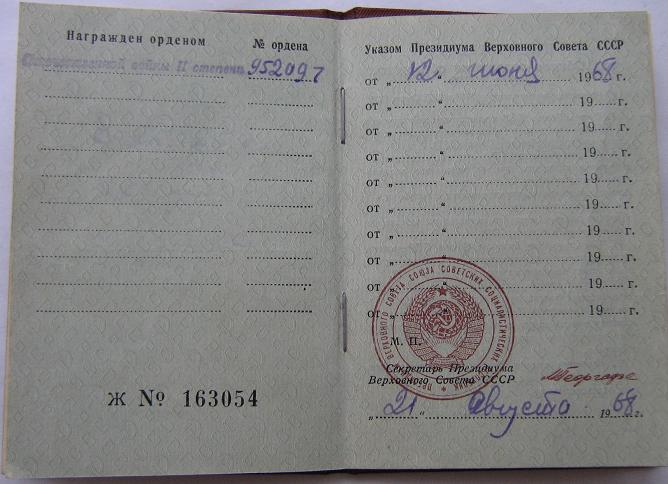 Награжден орденом
№ ордена
Отечественной войны II степени 952097
Ж № 163054
Указом Президиума Верховного Совета СССР
от „ 12 “ июня 1968 г.
от „ “ 19 г.
от „ “ 19 г.
от „ “ 19 г.
от „ “ 19 г.
от „ “ 19 г.
от „ “ 19 г.
от „ “ 19 г.
от „ “ 19 г.
от „ “ 19 г.
М. П.
Секретарь Президиума
Верховного Совета СССР
„ 21 “ августа 1968 г.
ВЕРХОВНОГО СОВЕТА СОЮЗА СОВЕТСКИХ СОЦИАЛИСТИЧЕСКИХ